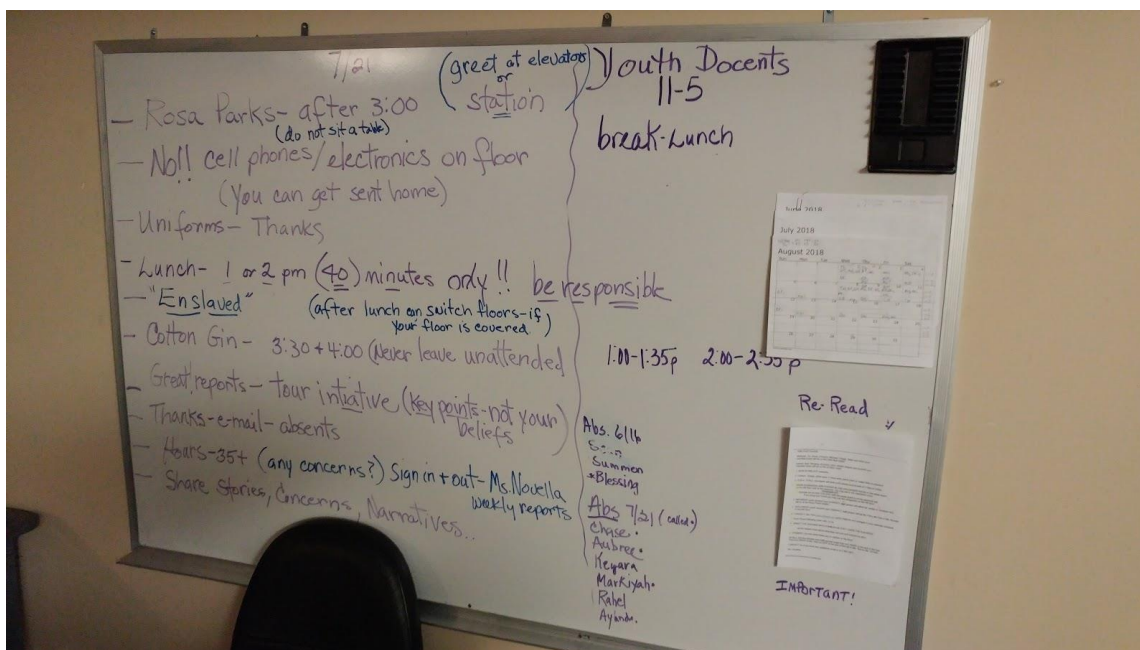 7/21
(greet at elevators
or
station)
— Rosa Parks- after 3:00
(do not sit a table)
— No!! cell phones/electronics on floor
(You can get sent home)
- Uniforms- Thanks
- Lunch- 1 or 2 pm (40) minutes only!! be responsible
- "Enslaved"
(after lunch can switch floors-if
your floor is covered)
- Cotton Gin- 3:30 + 4:00 (Never leave unattended
- Great reports- tour intiative (key points-not your
beliefs)
- Thanks-e-mail- absents
- Hours-35+ (any concerns?) Sign in + out- Ms. Novella
weekly reports
- Share Stories, Concerns, Narratives..
Youth Docents
11-5
break-Lunch
1:00-1:35p 2:00-2:35p
Abs. 6/16
Summer
*Blessing
Abs 7/21 (called•)
Chase•
Aubree•
Keyara
Markiyah•
Rahel
June 2018
July 2018
August 2018
Re-Read
Important!